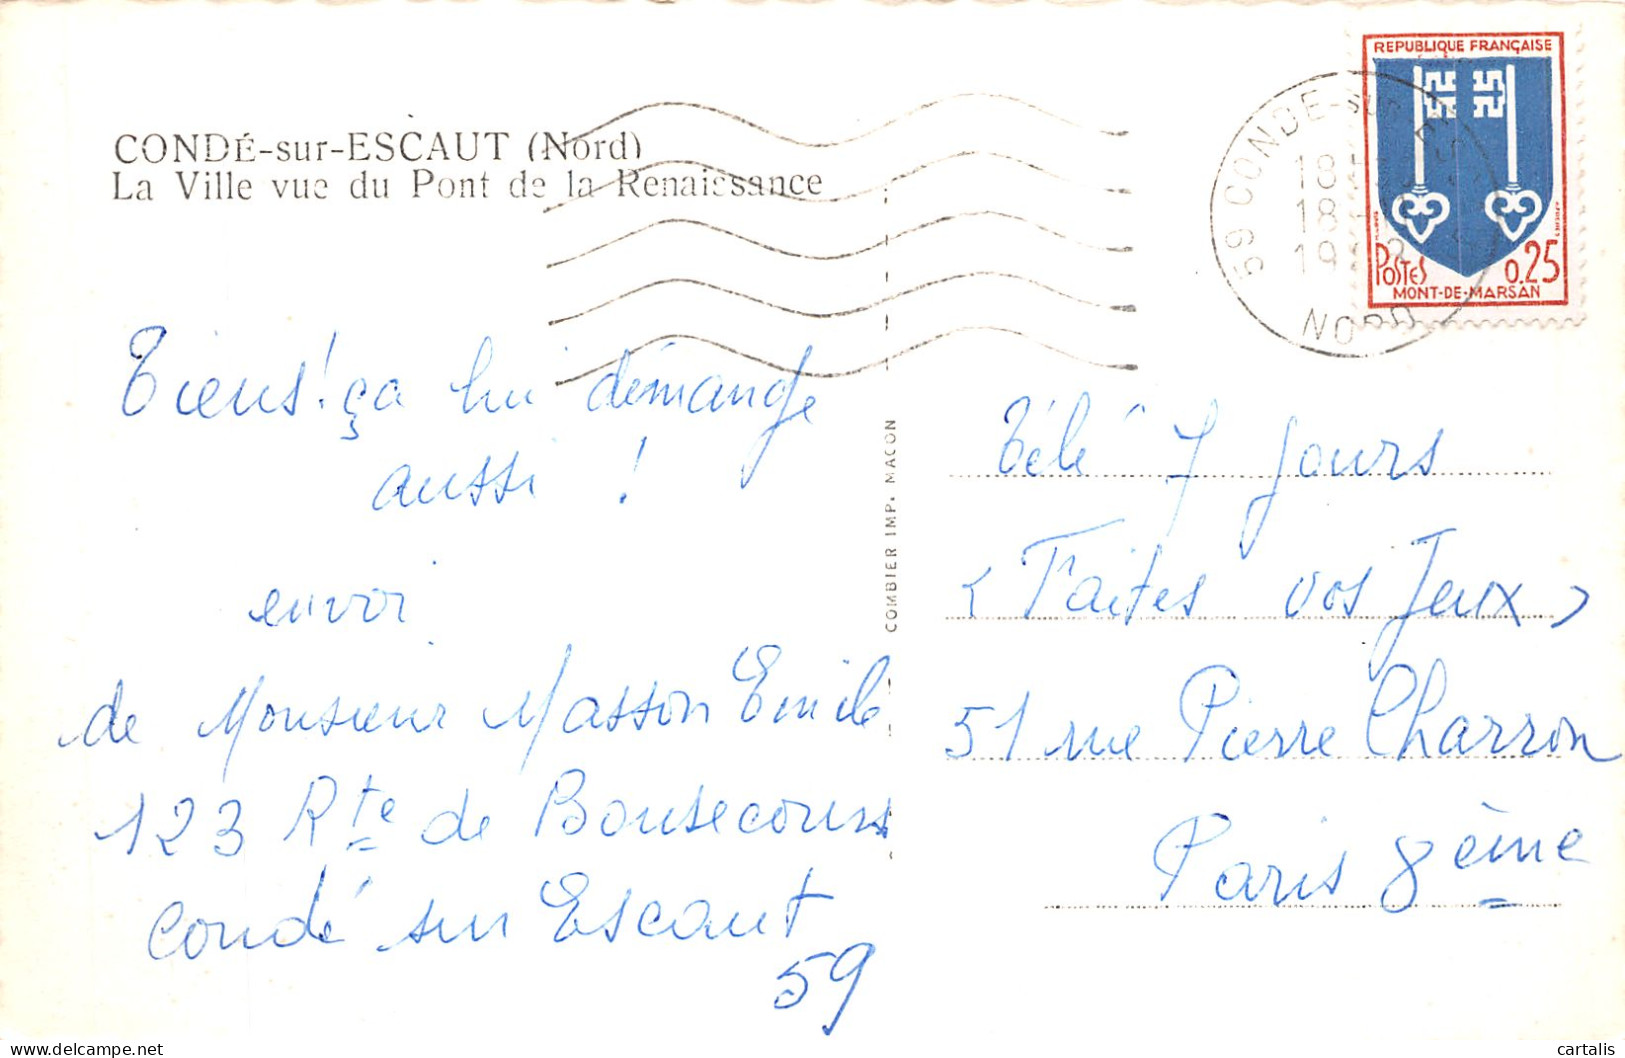 CONDÉ-sur-ESCAUT (Nord)
La Ville vue du Pont de la Renaissance
Tiens! ça lui démange
aussi !
envoi
de Monsieur Masson Emile
123 Rte de Bonsecours
Condé sur Escaut
59
COMBIER IMP. MACON
REPUBLIQUE FRANÇAISE
POSTES 0,25
MONT-DE-MARSAN
59 CONDE-SUR-ES
18
18
19
NORD
Télé 7 Jours
< Faites vos Jeux >
51 rue Pierre Charron
Paris 8ème
delcampe.net
cartalis